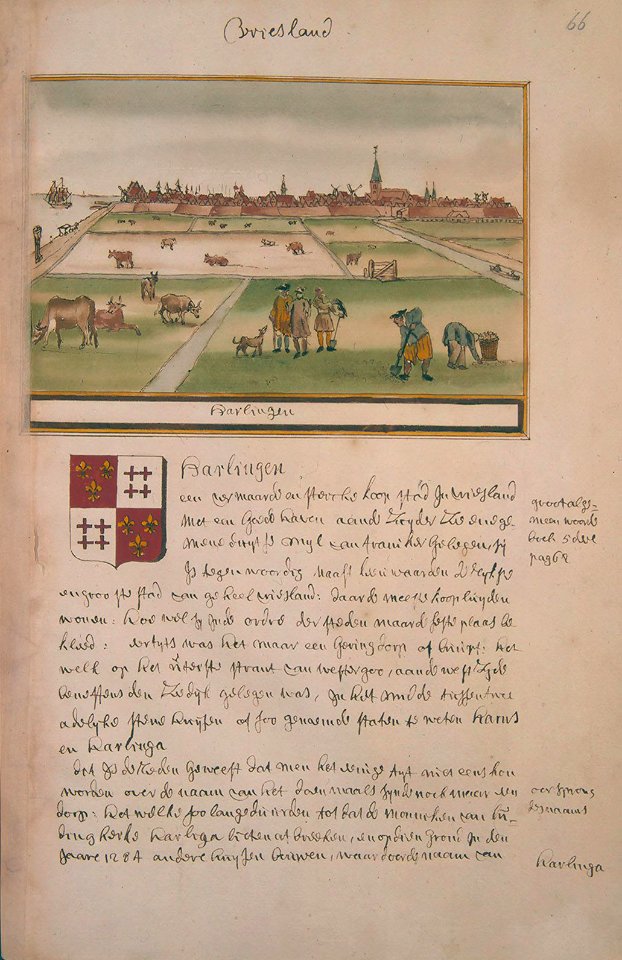 Vriesland
66
Harlingen
Harlingen
een vermaarde en stercke koop stad In vriesland
met een goede haven aande Zuyder Zee en ge
mene duytse myl van franiker gelegen, sy
Is tegenwoordig naast leeuwaarden de rykste
en grootste stad van geheel vriesland: daar de meeste koopluyden
wonen: hoe wel sy Inde ordre der steden maar de seste plaas be
kleed: eertyts was het maar een gering dorp of buurt: het
welk op het uiterste strant van westergoo, aande west Zyde
beneffens den Zeedyk gelegen was, In het midde tussen twe
adelyke stene huysen of soo genaemde staten te weten harns
en harlinga
dit Is de reden geweest dat men het enige tyt niet eens kon
worden over de naam van het doenmaals synde noch maar een
dorp: het welke soo lange duurden tot dat de monniken van
kerke harliga lieten af breeken, en op dien grond In den
Jaare 1284 andere huysen bouwen, waar door de naam van
groot alge=
meen woorde
boek 5 deel
pag 68
oorsprong
des naams
harlinga